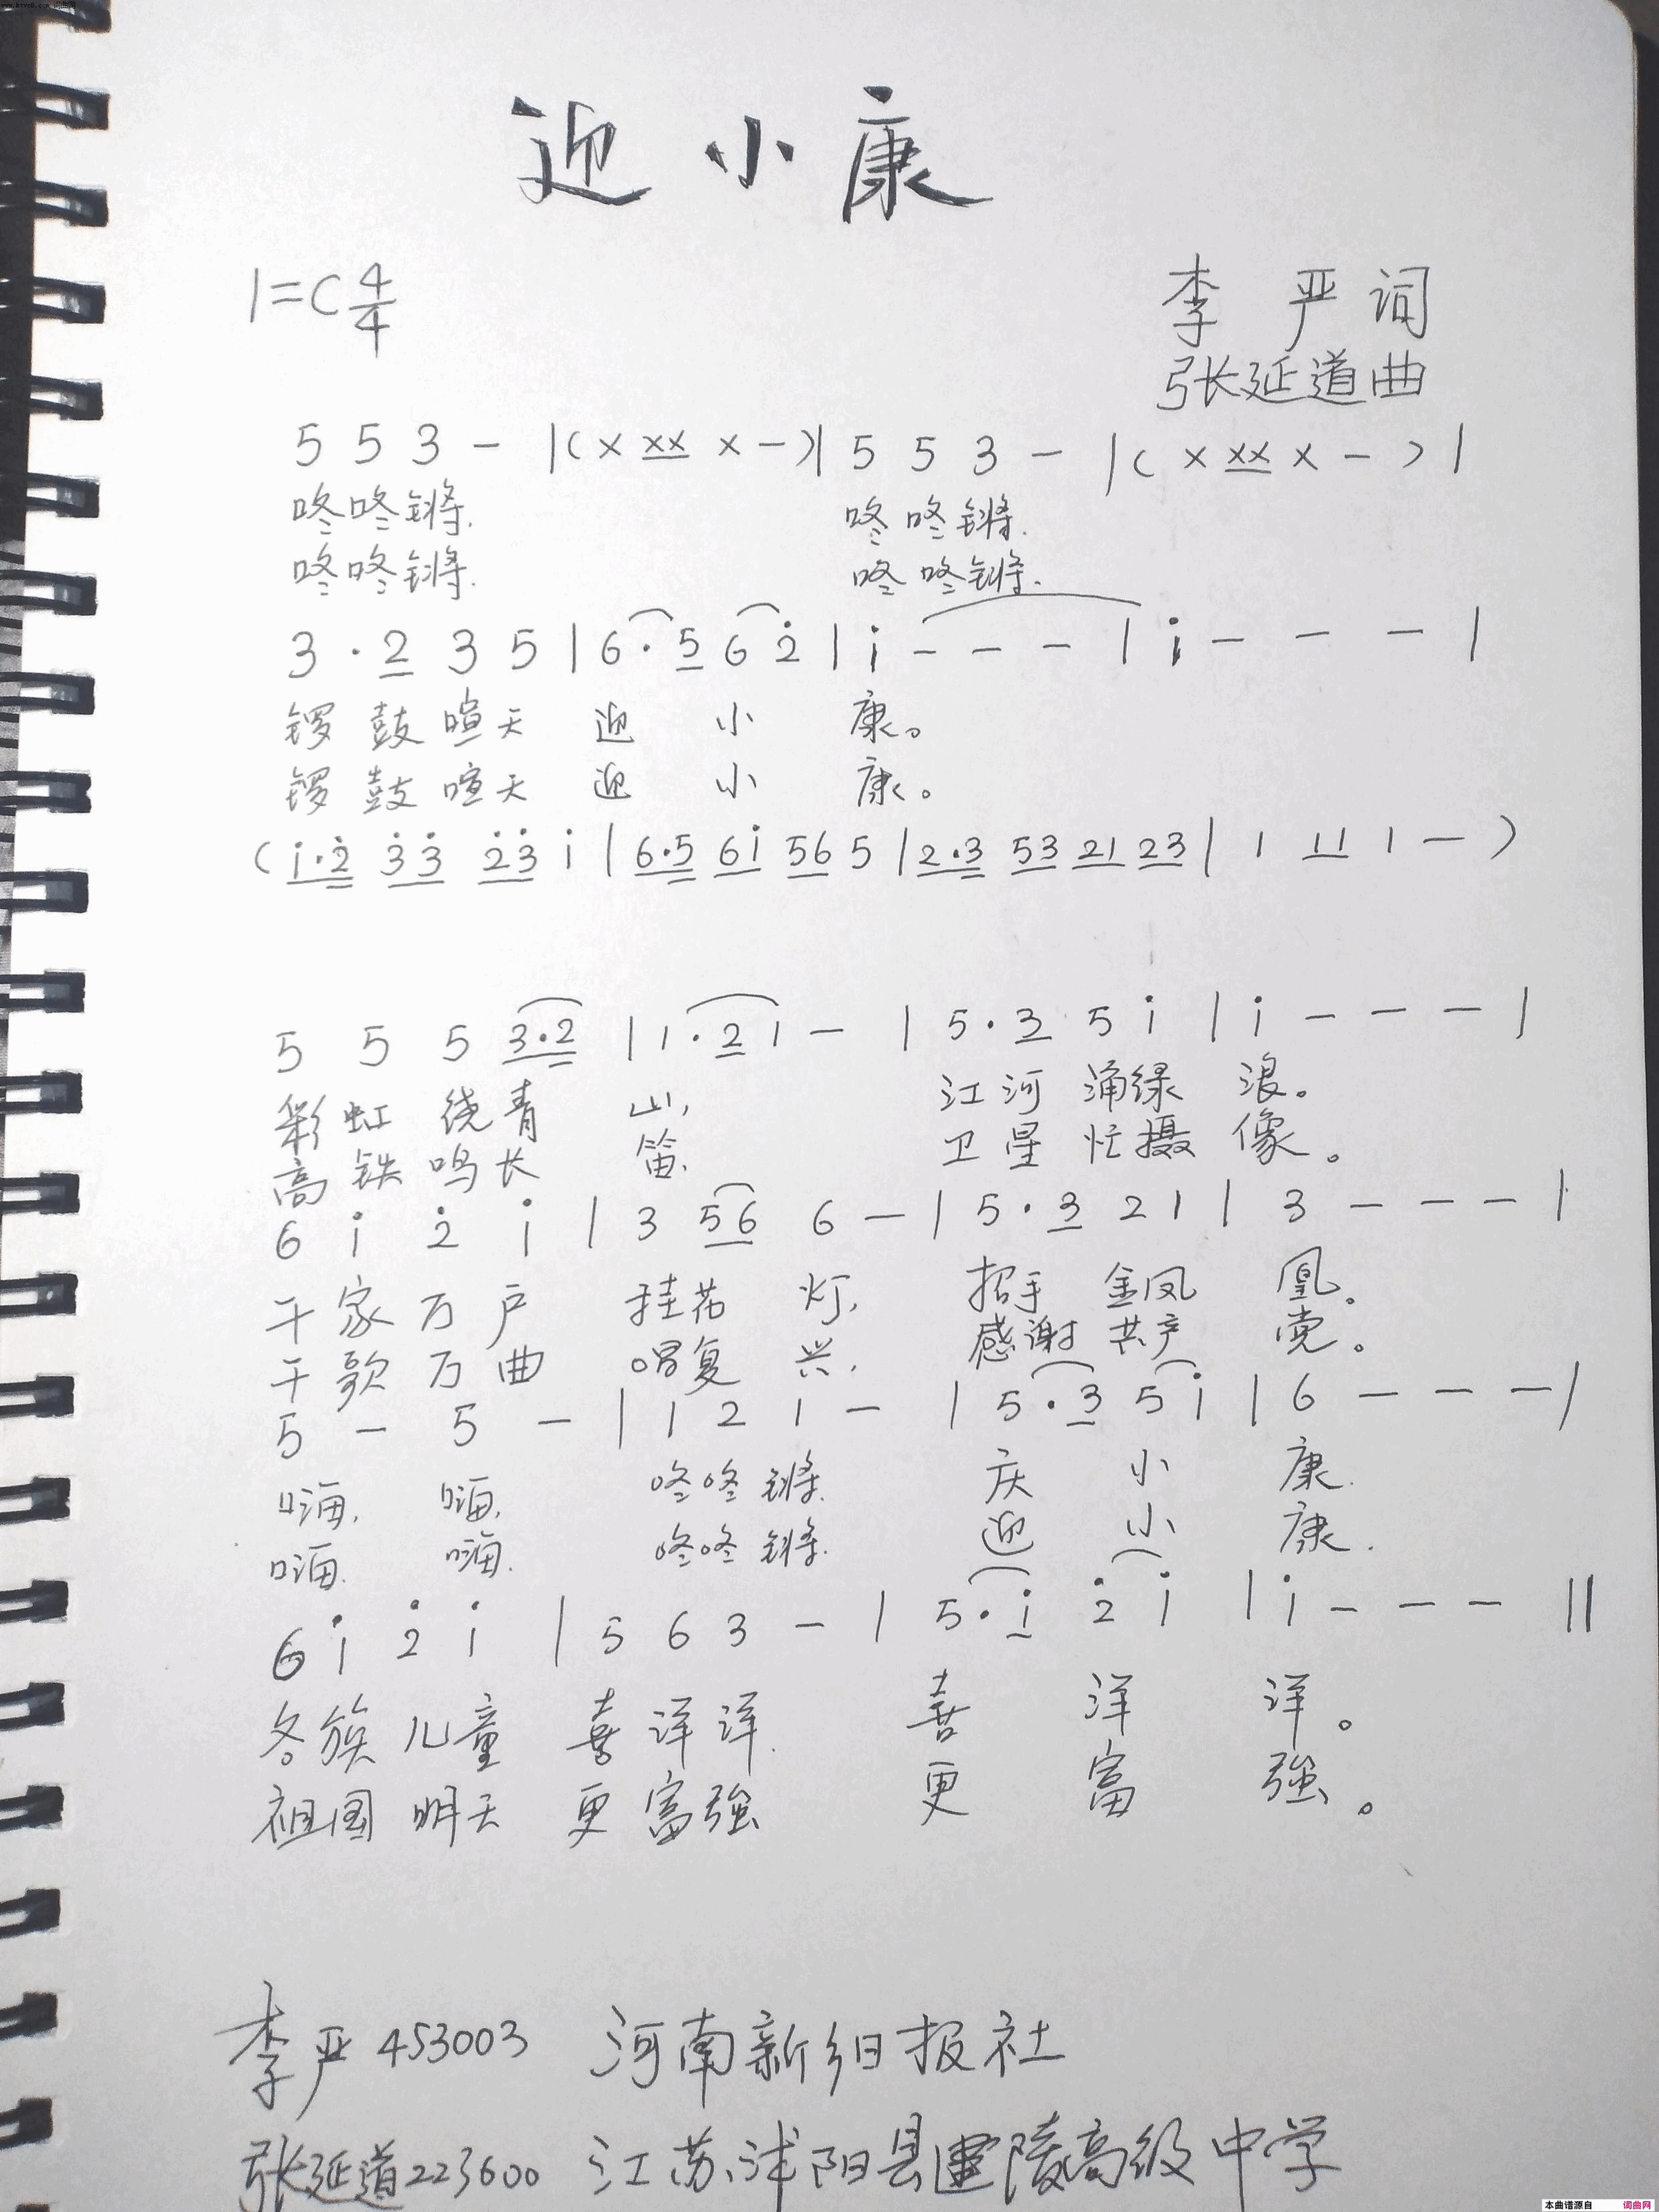 迎小康
1=C 4/4
李 严 词
张延道曲
5 5 3 - |( X XX X - )| 5 5 3 - |( X XX X - )|
咚咚锵. 咚咚锵.
咚咚锵. 咚咚锵.
3 · 2 3 5 | 6 · 5 6 2̇ | i - - - | i - - - |
锣 鼓 喧 天 迎 小 康。
锣 鼓 喧 天 迎 小 康。
( i·2̇ 3̇3̇ 2̇3̇ i | 6·5 6i 56 5 | 2·3 53 21 23 | 1 11 1 - )
5 5 5 3·2 | 1·2 1 - | 5·3 5 i | i - - - |
彩 虹 绕 青 山, 江 河 涌 绿 浪。
高 铁 鸣 长 笛. 卫 星 忙 摄 像。
6 i 2̇ i | 3 56 6 - | 5·3 2 1 | 3 - - - |
千 家 万 户 挂 花 灯, 招手 金凤 凰。
千 歌 万 曲 唱 复 兴, 感谢 共产 党。
5 - 5 - | 1 2 1 - | 5·3 5 i | 6 - - - |
嗨, 嗨, 咚咚锵. 庆 小 康.
嗨. 嗨. 咚咚锵. 迎 小 康.
6 i 2̇ i | 5 6 3 - | 5·i 2̇ i | i - - - ‖
各族 儿童 喜洋洋. 喜 洋 洋。
祖国 明天 更富強 更 富 強。
李严 453003 河南新乡日报社
张延道 223600 江苏沭阳县建陵高级中学
本曲谱源自 词曲网